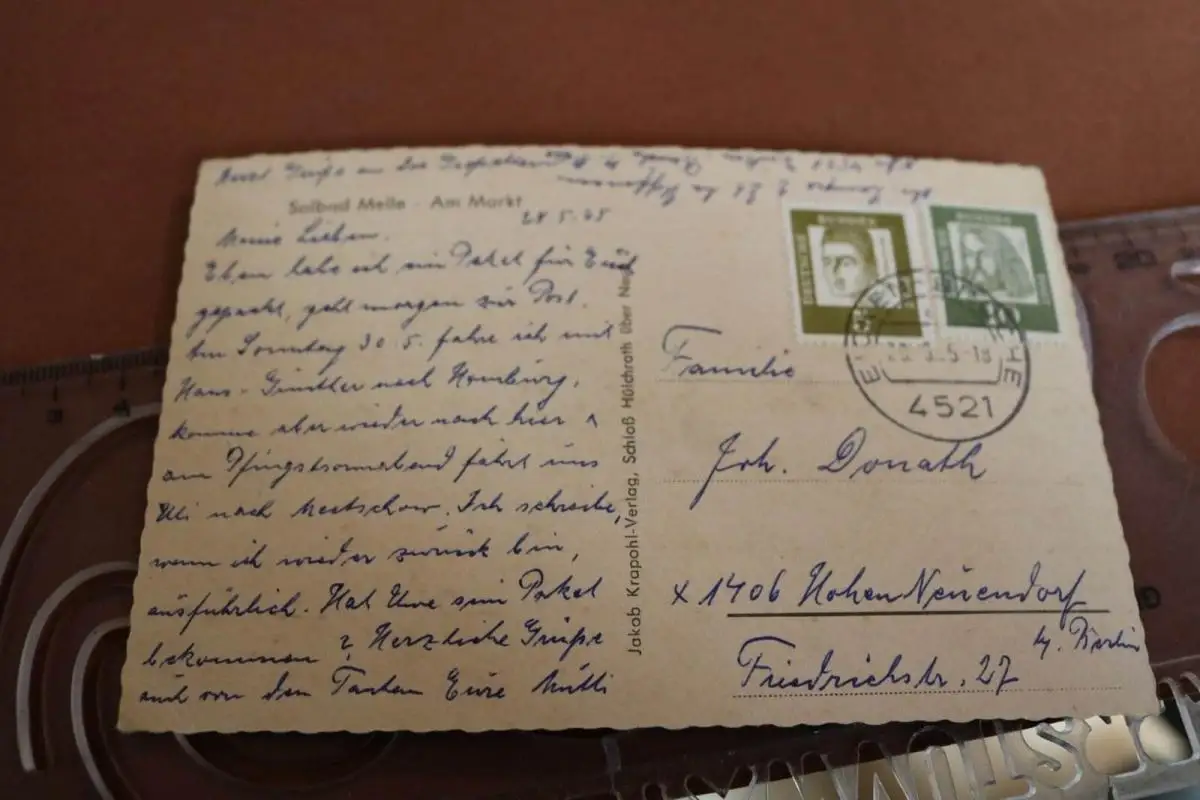 Herzl Grüße an
Solbad Melle - Am Markt
28.5.65
Meine Lieben.
Eben habe ich ein Paket für Euch
gepackt, geht morgen zur Post.
Am Sonntag 30.5. fahre ich mit
Hans-Günther nach Homburg,
komme aber wieder nach hier
am Pfingstsonnabend fährt uns
Uli nach Mestschow. Ich schreibe,
wenn ich wieder zurück bin,
ausführlich. Hat Uwe sein Paket
bekommen? Herzliche Grüße
auch von den Tanten Eure Mutti
Jakob Krapohl-Verlag, Schloß Hülchrath über Neuß
DEUTSCHE BUNDESPOST
4521
Familie
Joh. Donath
x 1406 Hohen Neuendorf
b. Berlin
Friedrichstr. 27